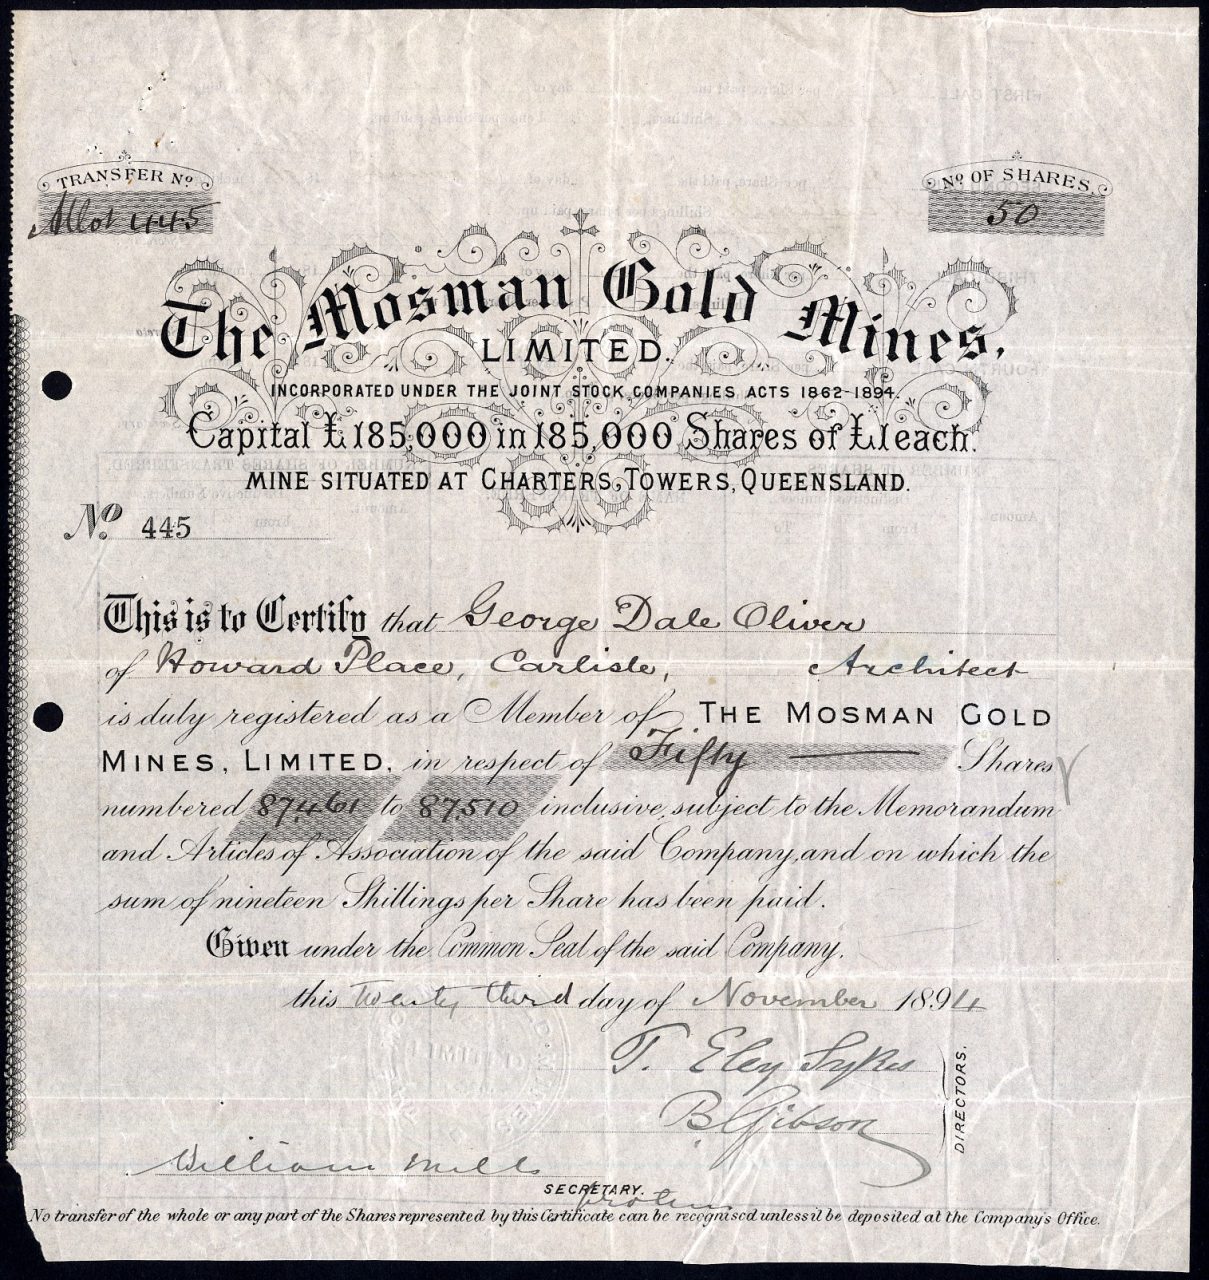 TRANSFER No.
Allot 445
No. OF SHARES.
50
The Mosman Gold Mines,
LIMITED.
INCORPORATED UNDER THE JOINT STOCK COMPANIES ACTS 1862-1894.
Capital £185,000 in 185,000 Shares of £1 each.
MINE SITUATED AT CHARTERS TOWERS, QUEENSLAND.
No. 445
This is to Certify that George Dale Oliver
of Howard Place, Carlisle, Architect
is duly registered as a Member of THE MOSMAN GOLD
MINES, LIMITED, in respect of Fifty Shares
numbered 87,461 to 87,510 inclusive, subject to the Memorandum
and Articles of Association of the said Company, and on which the
sum of nineteen Shillings per Share has been paid.
Given under the Common Seal of the said Company,
this twenty third day of November 1894
T. Eley Sykes
B. Gibson
DIRECTORS.
William Mills
SECRETARY.
pro tem
No transfer of the whole or any part of the Shares represented by this Certificate can be recognised unless it be deposited at the Company's Office.